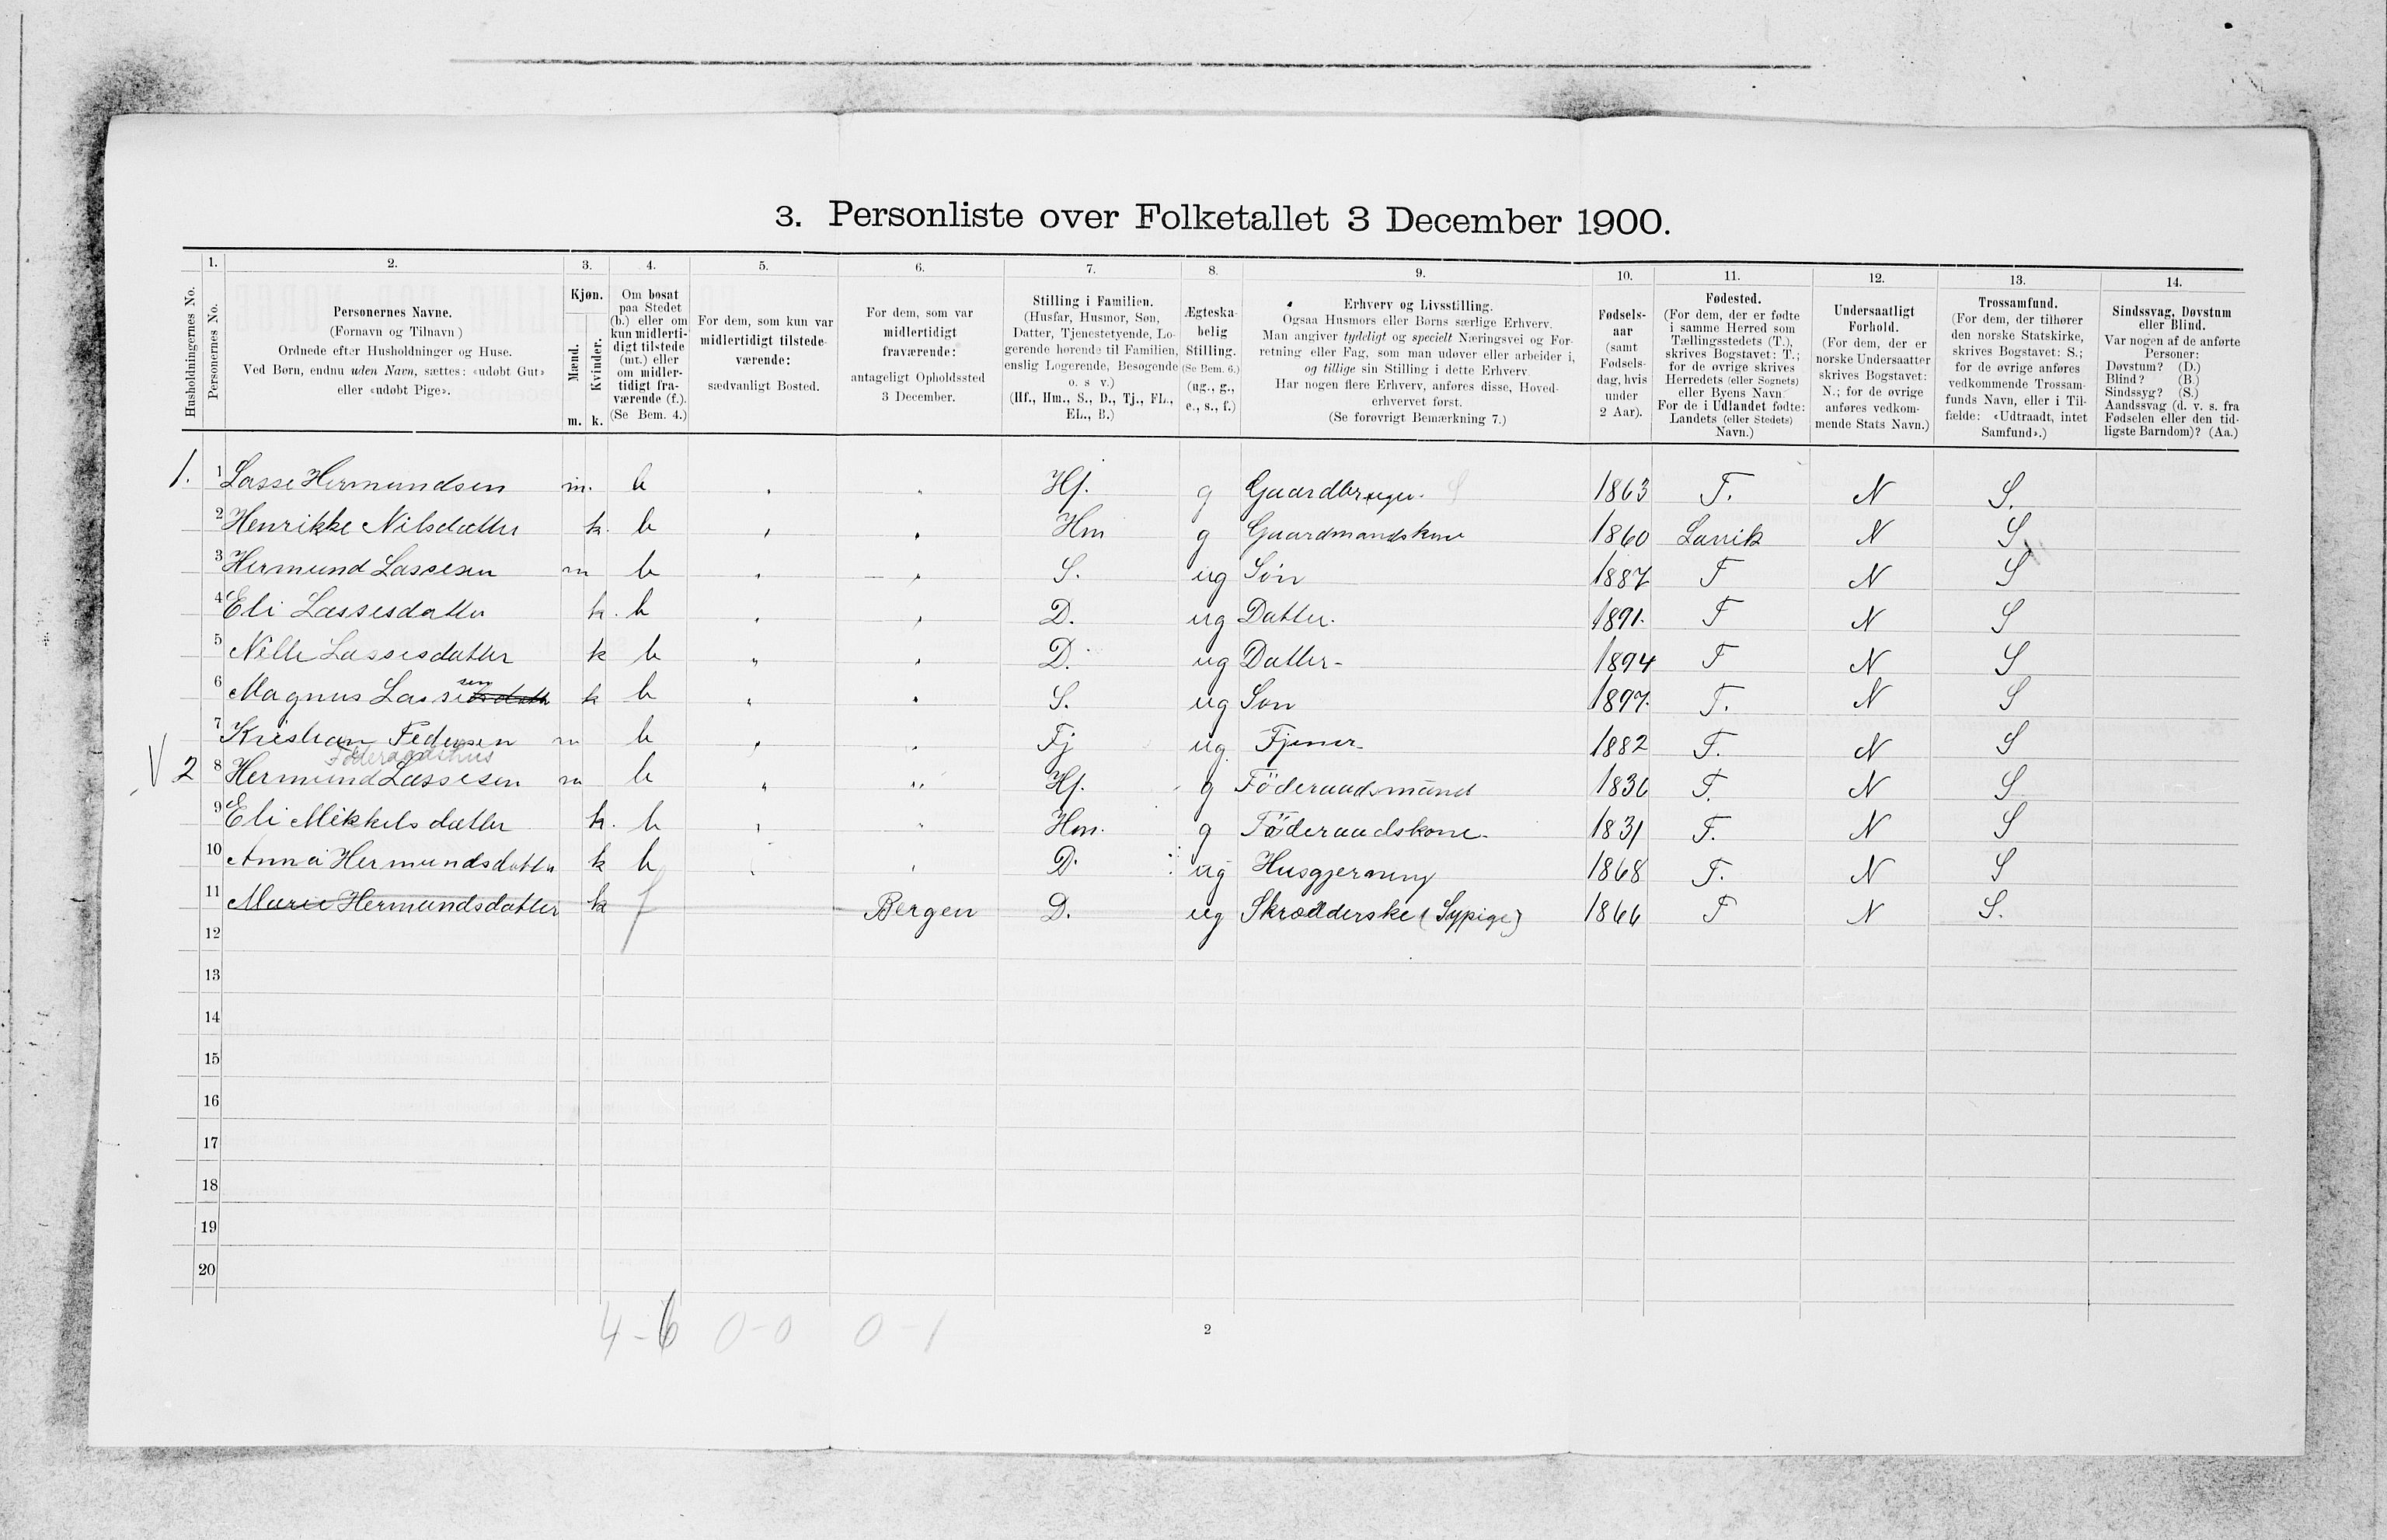 3. Personliste over Folketallet 3 December 1900.
1. 2. 3. 4. 5. 6. 7. 8. 9. 10. 11. 12. 13. 14.
Husholdningernes No.
Personernes No.
Personernes Navne.
(Fornavn og Tilnavn)
Ordnede efter Husholdninger og Huse.
Ved Børn, endnu uden Navn, sættes: «udøbt Gut»
eller «udøbt Pige».
Kjøn.
Mænd.
Kvinder.
m. k.
Om bosat
paa Stedet
(b.) eller om
kun midlerti-
digt tilstede
(mt.) eller
om midler-
tidigt fra-
værende (f.).
(Se Bem. 4.)
For dem, som kun var
midlertidigt tilstede-
værende:
sædvanligt Bosted.
For dem, som var
midlertidigt
fraværende:
antageligt Opholdssted
3 December.
Stilling i Familien.
(Husfar, Husmor, Søn,
Datter, Tjenestetyende, Lo-
gerende hørende til Familien,
enslig Logerende, Besøgende
o. s v.)
(Hf., Hm., S., D., Tj., FL.,
EL., B.)
Ægteska-
belig
Stilling.
(Se Bem. 6.)
(ug., g.,
e., s., f.)
Erhverv og Livsstilling.
Ogsaa Husmors eller Børns særlige Erhverv.
Man angiver tydeligt og specielt Næringsvei og For-
retning eller Fag, som man udøver eller arbeider i,
og tillige sin Stilling i dette Erhverv.
Har nogen flere Erhverv, anføres disse, Hoved-
erhvervet først.
(Se forøvrigt Bemærkning 7.)
Fødsels-
aar
(samt
Fødsels-
dag, hvis
under
2 Aar).
Fødested.
(For dem, der er fødte
i samme Herred som
Tællingsstedets (T.),
skrives Bogstavet: T.;
for de øvrige skrives
Herredets (eller Sognets)
eller Byens Navn.
For de i Udlandet fødte:
Landets (eller Stedets)
Navn.)
Undersaatligt
Forhold.
(For dem, der er
norske Undersaatter
skrives Bogstavet:
N.; for de øvrige
anføres vedkom-
mende Stats Navn.)
Trossamfund.
(For dem, der tilhører
den norske Statskirke,
skrives Bogstavet: S.;
for de øvrige anføres
vedkommende Trossam-
funds Navn, eller i Til-
fælde: «Udtraadt, intet
Samfund».)
Sindssvag, Døvstum
eller Blind.
Var nogen af de anførte
Personer:
Døvstum? (D.)
Blind? (B.)
Sindssyg? (S.)
Aandssvag (d. v. s. fra
Fødselen eller den tid-
ligste Barndom)? (Aa.)
1. 1 Lasse Hermundsen m. b Hf. g Gaardbruger. 1863 T. N S.
2 Henrikke Nilsdatter k. b Hm g Gaardmandskone 1860 Lavik N S
3 Hermund Lassesen m b S. ug Søn 1887 T N S
4 Eli Lassesdatter k. b D. ug Datter. 1891. T N S
5 Nille Lassesdatter k b D. ug Datter- 1894 T N S
6 Magnus Lassesen k b S. ug Søn 1897. T. N S
7 Kristian Pedersen m b Tj ug. Tjener 1882 T. N S
Föderaadshus
V 2 8 Hermund Lassesen m b Hf. g Föderaadsmand 1836 T. N S
9 Eli Mikkelsdatter k. b Hm. g Föderaadskone. 1831 T. N S
10 Anna Hermundsdatter k b D. ug Husgjerning 1868 T. N S
11 Marie Hermundsdatter k f Bergen D. ug Skrædderske (Sypige) 1866 T N S.
12
13
14
15
16
17
18
19
20
4-6 0-0 0-1
2